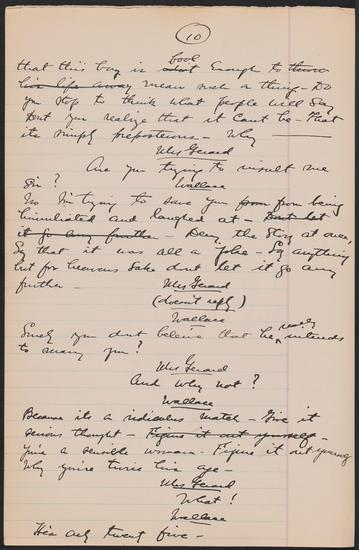 10
that this boy is fool enough to throw
his life away mean such a thing - Do
you stop to think what people will say
Dont you realize that it cant be - That
its simply preposterous - Why
Mrs Gerard
Are you trying to insult me
Sir?
Wallace
No I'm trying to save you from from being
humiliated and laughed at - Dont let
it go any further - Deny the story at once,
Say that it was all a joke - Say anything
but for heavens sake dont let it go any
further -
Mrs Gerard
(doesn't reply)
Wallace
Surely you dont believe that he really intends
to marry you?
Mrs Gerard
And why not?
Wallace
Because its a ridiculous match - Give it
serious thought - Figure it out yourself -
you're a sensible woman. Figure it out yourself
Why you're twice his age -
Mrs Gerard
What!
Wallace
He's only twenty five -